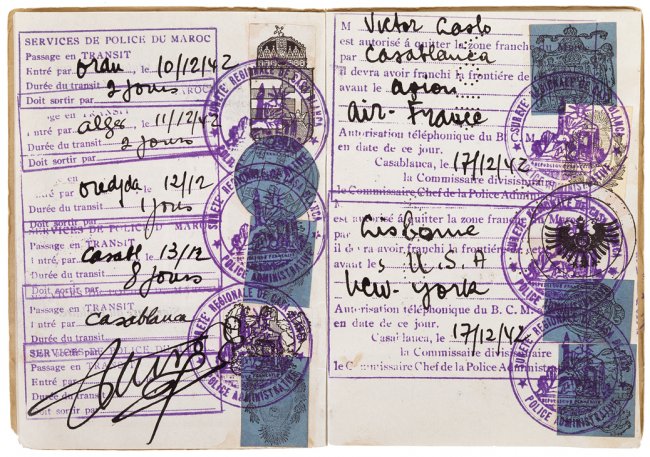 SERVICES DE POLICE DU MAROC
Passage en TRANSIT
Entré par oran, le, 10/12/42
Durée du transit 2 Jours
Doit sortir par
Passage en TRANSIT
Entré par alger, le, 11/12/42
Durée du transit 2 Jours
Doit sortir par
Passage en TRANSIT
Entré par oudjda, le, 12/12
Durée du transit 1 Jours
Doit sortir par
SERVICES DE POLICE DU MAROC
Passage en TRANSIT
Entré par Casabl, le, 13/12
Durée du transit 8 Jours
Doit sortir par
Passage en TRANSIT
Entré par Casablanca
Durée du transit
Doit sortir par
SERVICES DE POLICE
Passage en TRANSIT
Entré par
Durée du transit
Doit sortir par
SURETÉ REGIONALE DE CASABLANCA
POLICE ADMINISTRATIVE
M Victor Laslo
est autorisé à quitter la zone franche
par Casablanca
il devra avoir franchi la frontière
avant le avion
air - France
Autorisation téléphonique du B. C. M.
en date de ce jour.
Casablanca, 17/12/42
la Commissaire divisionnaire
le Commissaire Chef de la Police Admin
est autorisé à quitter la zone franche du Maroc
Lisbonne
il devra avoir franchi la frontière
avant le U.S.A
New-York
Autorisation téléphonique du B. C. M.
en date de ce jour.
Casablanca, 17/12/42
la Commissaire divisionnaire
le Commissaire Chef de la Police Admin
SURETÉ REGIONALE DE CASABLANCA
POLICE ADMINISTRATIVE